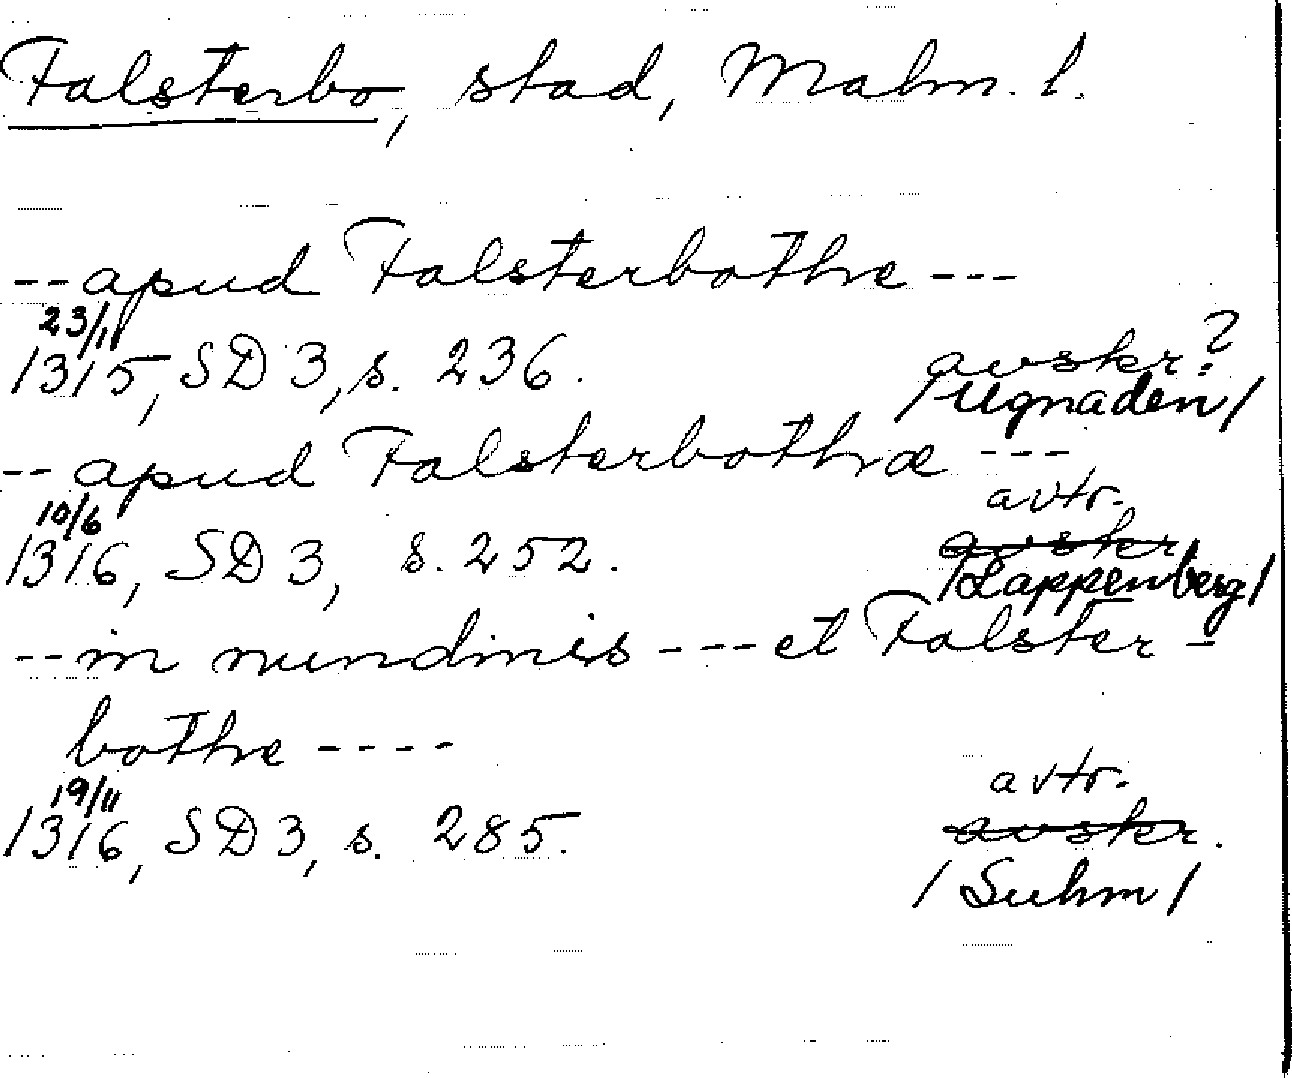 Falsterbo, stad, Malm. l.
--apud Falsterbothe---
23/11
1315, SD 3, s. 236. avskr.?
/Ugnaden/
--apud Falsterbothæ ---
10/6 avtr.
1316, SD 3, s. 252. avskr.
/Lappenberg/
--in nundinis ---et Falster-
bothe----
19/11 avtr.
1316, SD 3, s. 285. avskr.
/Suhm/